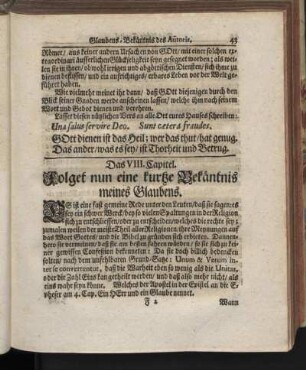 Glaubens-Bekäntnis des Auweis. 45
Römer/ aus keiner andern Ursachen von GOtt/ mit einer solchen ex-
traordinari äusserlichen Glückseligkeit seyn gesegnet worden; als wei-
len sie in ihrer/ ob wohl irrigen und abgöttischen Diensten/ sich ihrer zu
dienen beflissen/ und ein aufrichtiges/ erbares Leben vor der Welt ge-
führet haben.
Wie vielmehr meinet ihr dann/ daß GOtt diejenigen durch den
Blick seiner Gnaden werde anscheinen lassen/ welche ihn nach seinem
Wort und Gebot dienen und verehren.
Lasset diesen nützlichen Vers an alle Ort eures Hauses schreiben:
Una salus servire Deo. Sunt cætera fraudes.
GOtt dienen ist das Heil; wer das thut/ hat genug.
Das ander/ was es sey/ ist Thorheit und Betrug.
Das VIII. Capitel.
Folget nun eine kurtze Bekäntnis
meines Glaubens.
ES ist eine fast gemeine Rede unter den Leuten/ daß sie sagen/ es
sey ein schwer Werck bey so vielen Spaltungen in den Religionen
sich zu entschliessen/ oder zu entscheiden/ welches die rechte sey;
zumalen weilen der meiste Theil aller Religionen ihre Meynungen auf
das Wort Gottes/ und die Bibel zu gründen sich erbieten. Dannen-
hero sie vermeinen/ daß sie am besten fahren würden/ so sie sich zu keiner
gewissen Confession bekennten. Da sie doch billich bedencken
solten/ nach dem unfehlbaren Grund-Satze: Unum & Verum in-
ter se convertuntur, daß die Warheit eben so wenig als die Unitas,
oder die Zahl Eins kan getheilet werden/ und daß also mehr nicht/ als
eins wahr seyn könne. Welches der Apostel in der Epistel an die E-
pheser am 4. Cap. Ein HErr und ein Glaube nennet.
F 2 Wann